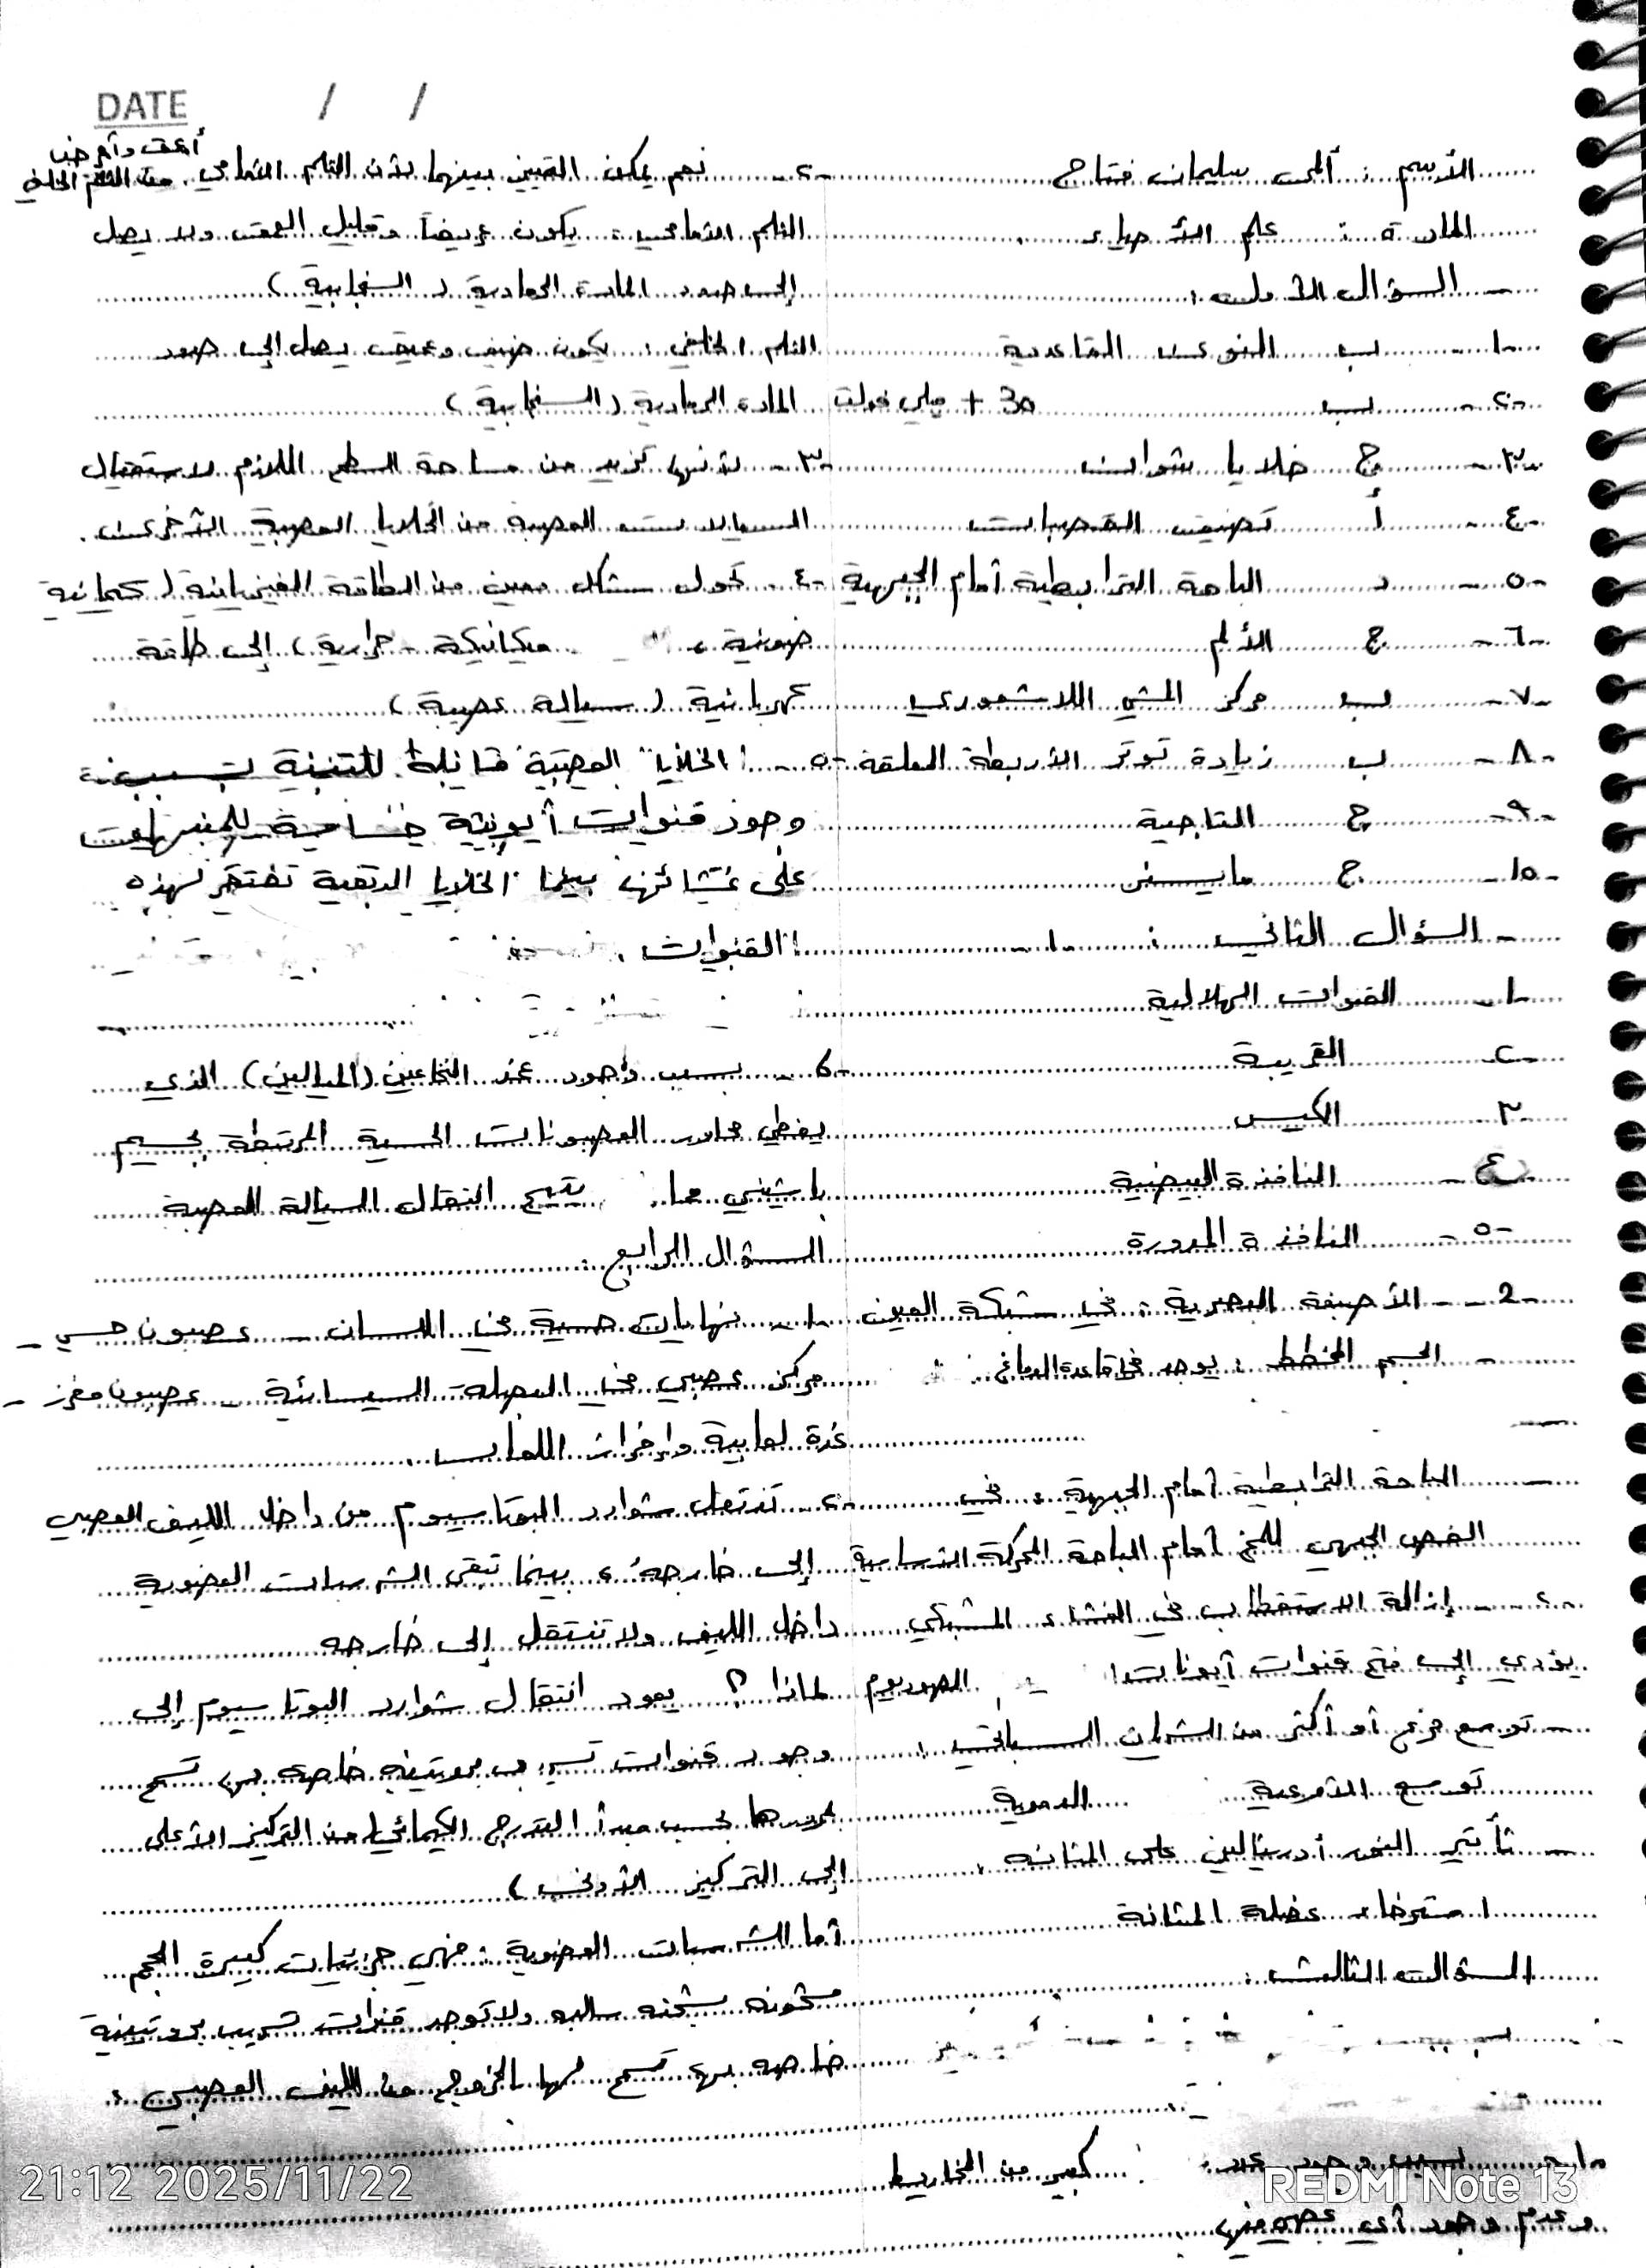 DATE / /
الأسم : ألمى سليمان فتاح
المادة : علم الأحياء
السؤال الأول :
١- ب النوى القاعدية
٢- ب +30 ميلي فولت
٣- ج خلايا شوان
٤- أ تضيق القصبات
٥- د الباحة الترابطية أمام الجبهية
٦- ج الألم
٧- ب مركز المشي اللاشعوري
٨- ب زيادة توتر الأربطة المعلقة
٩- ج التاجية
١٠- ج مايسنر
- السؤال الثاني : ١-
١- القنوات الهلالية
٢- القريبة
٣- الكييس
٤- النافذة البيضية
٥- النافذة المدورة
2- - الأصبغة البصرية : في شبكة العين
- الجسم المخطط : يوجد في قاعدة الدماغ
- الباحة الترابطية أمام الجبهية : في
الفص الجبهي للمخ أمام الباحة المحركة الأساسية
٢- - إزالة الاستقطاب في الغشاء المشبكي
يؤدي إلى فتح قنوات أيونات الصوديوم
- توسع فرع أو أكثر من الشريان السباتي :
توسع الأوعية الدموية
- تأثير النور أدرينالين على المثانة :
استرخاء عضلة المثانة
السؤال الثالث :
١- بسبب وجود عدد كبير من المخاريط
وعدم وجود أي عصي فيها
٢- نعم يمكن التمييز بينهما لأن الثلم الأمامي أعمق وأعرض من الثلم الخلفي
الثلم الأمامي : يكون عريضاً وقليل العمق ولا يصل
إلى حدود المادة الرمادية ( السنجابية )
الثلم الخلفي : يكون ضيق وعميق يصل إلى حدود
المادة الرمادية ( السنجابية )
٣- لأنها تزيد من مساحة السطح اللازم لاستقبال
السيالات العصبية من الخلايا العصبية الأخرى .
٤- تحول شكل معين من الطاقة الفيزيائية ( كيميائية
ضوئية ، ميكانيكة - حرارية ) إلى طاقة
كهربائية ( سيالة عصبية )
٥- الخلايا العصبية قابلة للتنبيه بسبب
وجود قنوات أيونية حساسة للمنبهات
على غشائها بينما الخلايا الدبقية تفتقر لهذه
القنوات .
٦- بسبب وجود غمد النخاعين ( الميالين ) الذي
يغطي محاور العصبونات الحسية المرتبطة بجسيم
باشيني مما يتيح انتقال السيالة العصبية
السؤال الرابع :
١- نهايات حسية في اللسان - عصبون حسي -
مركز عصبي في البصلة السيسائية - عصبون مفرز -
غدة لعابية وإفراز اللعاب .
٢- تنتقل شوارد البوتاسيوم من داخل الليف العصبي
إلى خارجه ، بينما تبقى الشرسبات العضوية
داخل الليف ولا تنتقل إلى خارجه
لماذا ؟ يعود انتقال شوارد البوتاسيوم إلى
وجود قنوات تسرب بروتينية خاصة بها تسمح
بمرورها بحسب مبدأ التدرج الكيميائي ( من التركيز الأعلى
إلى التركيز الأدنى )
أما الشرسبات العضوية : فهي جزيئات كبيرة الحجم
مشحونة بشحنة سالبه ولا توجد قنوات تسريب بروتينية
خاصه بها تسمح لها بالخروج من الليف العصبي .
21:12 2025/11/22
REDMI Note 13